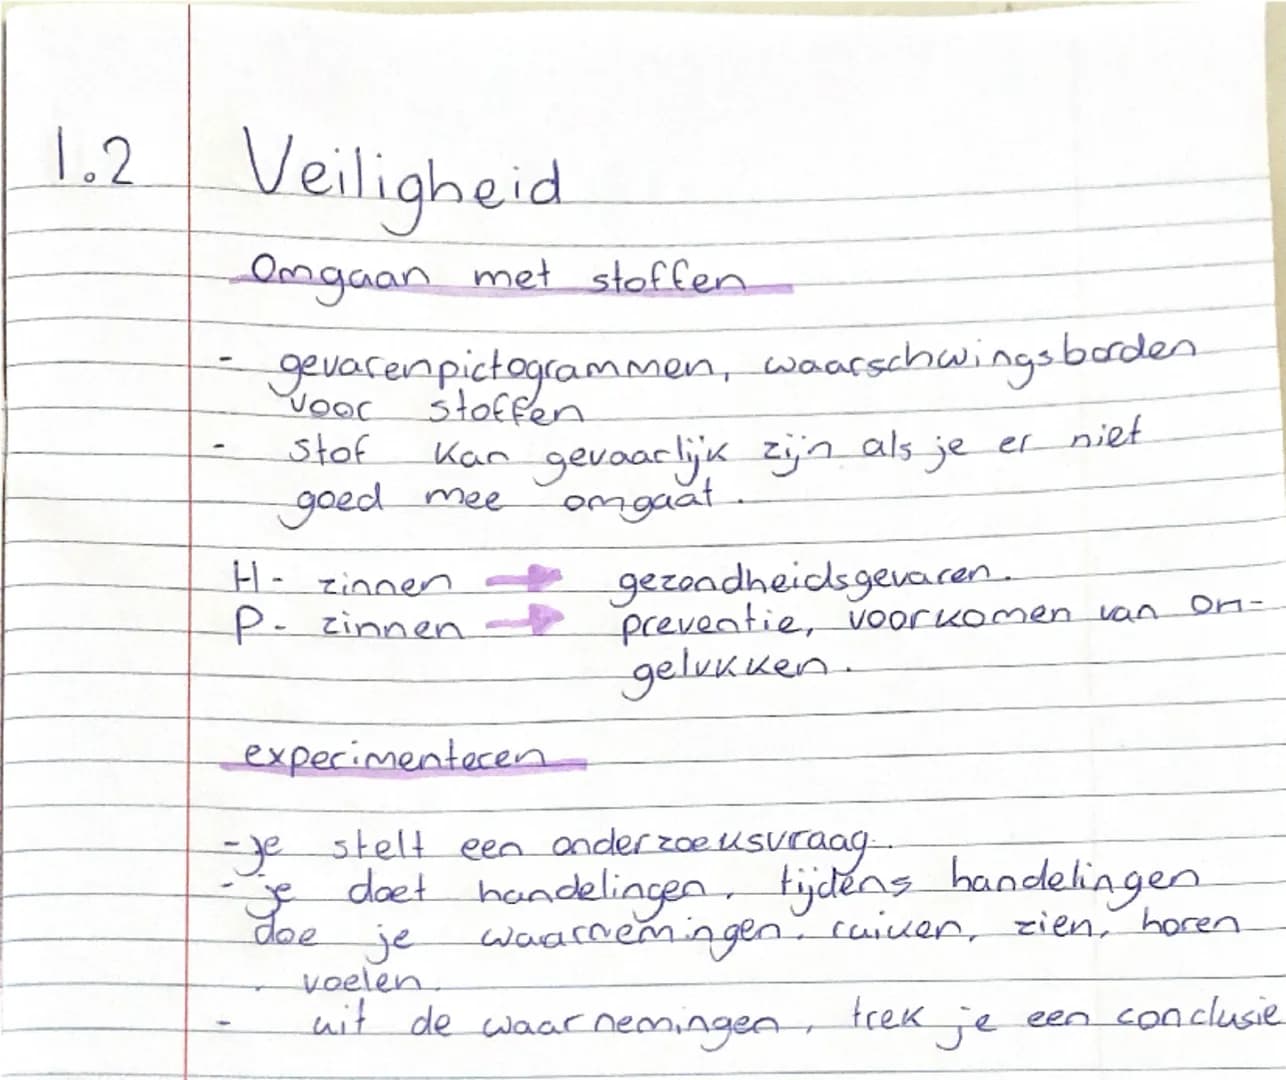 1.2 Veiligheid
Omgaan met stoffen
- gevarenpictogrammen, waarschwingsborden
voor stoffen
- stof kan gevaarlijk zijn als je er niet
goed mee omgaat.
H- zinnen → gezondheidsgevaren.
P- zinnen → preventie, voorkomen van on-
gelukken.
experimenteren
- je stelt een onderzoeksvraag.
- je doet handelingen, tijdens handelingen
doe je waarnemingen. ruiken, zien, horen
voelen.
- uit de waarnemingen, trek je een conclusie